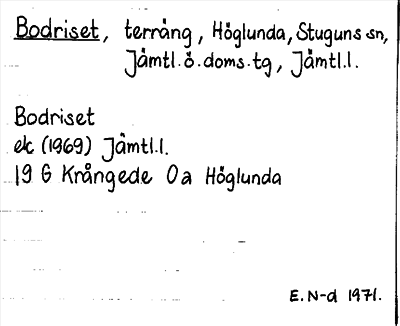 Bodriset, terräng, Höglunda, Stuguns sn,
Jämtl.ö.doms.tg, Jämtl.l.
Bodriset
ek (1969) Jämtl.l.
19 G Krångede 0a Höglunda
E.N-d 1971.